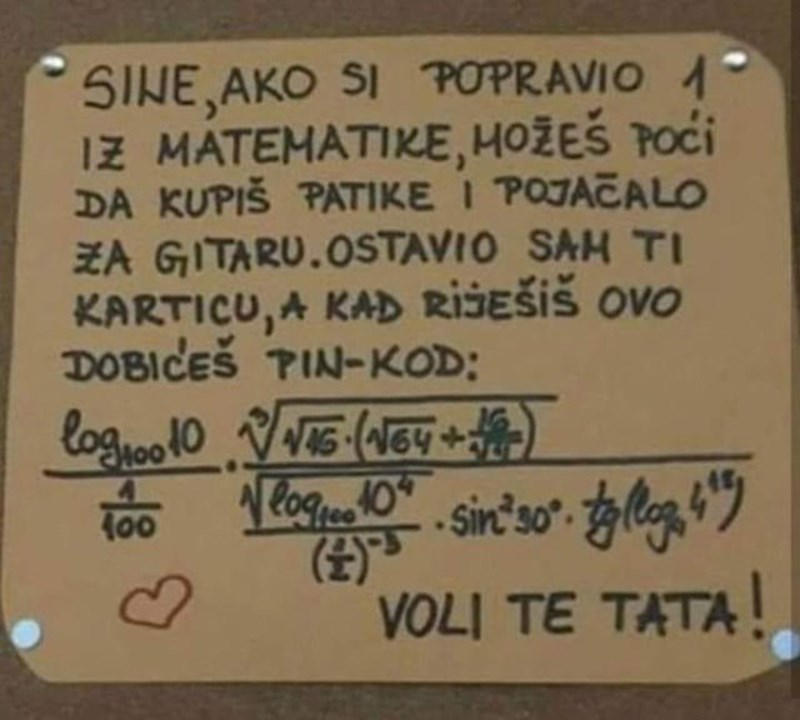 SINE, AKO SI POPRAVIO 1
IZ MATEMATIKE, MOŽEŠ POĆI
DA KUPIŠ PATIKE I POJAČALO
ZA GITARU. OSTAVIO SAM TI
KARTICU, A KAD RIJEŠIŠ OVO
DOBIĆEŠ PIN-KOD:
log₁₀₀10 / (1/100) · √(√16·(√64+
√(log₁₀₀10⁴) · sin²30° · tg(log
VOLI TE TATA!